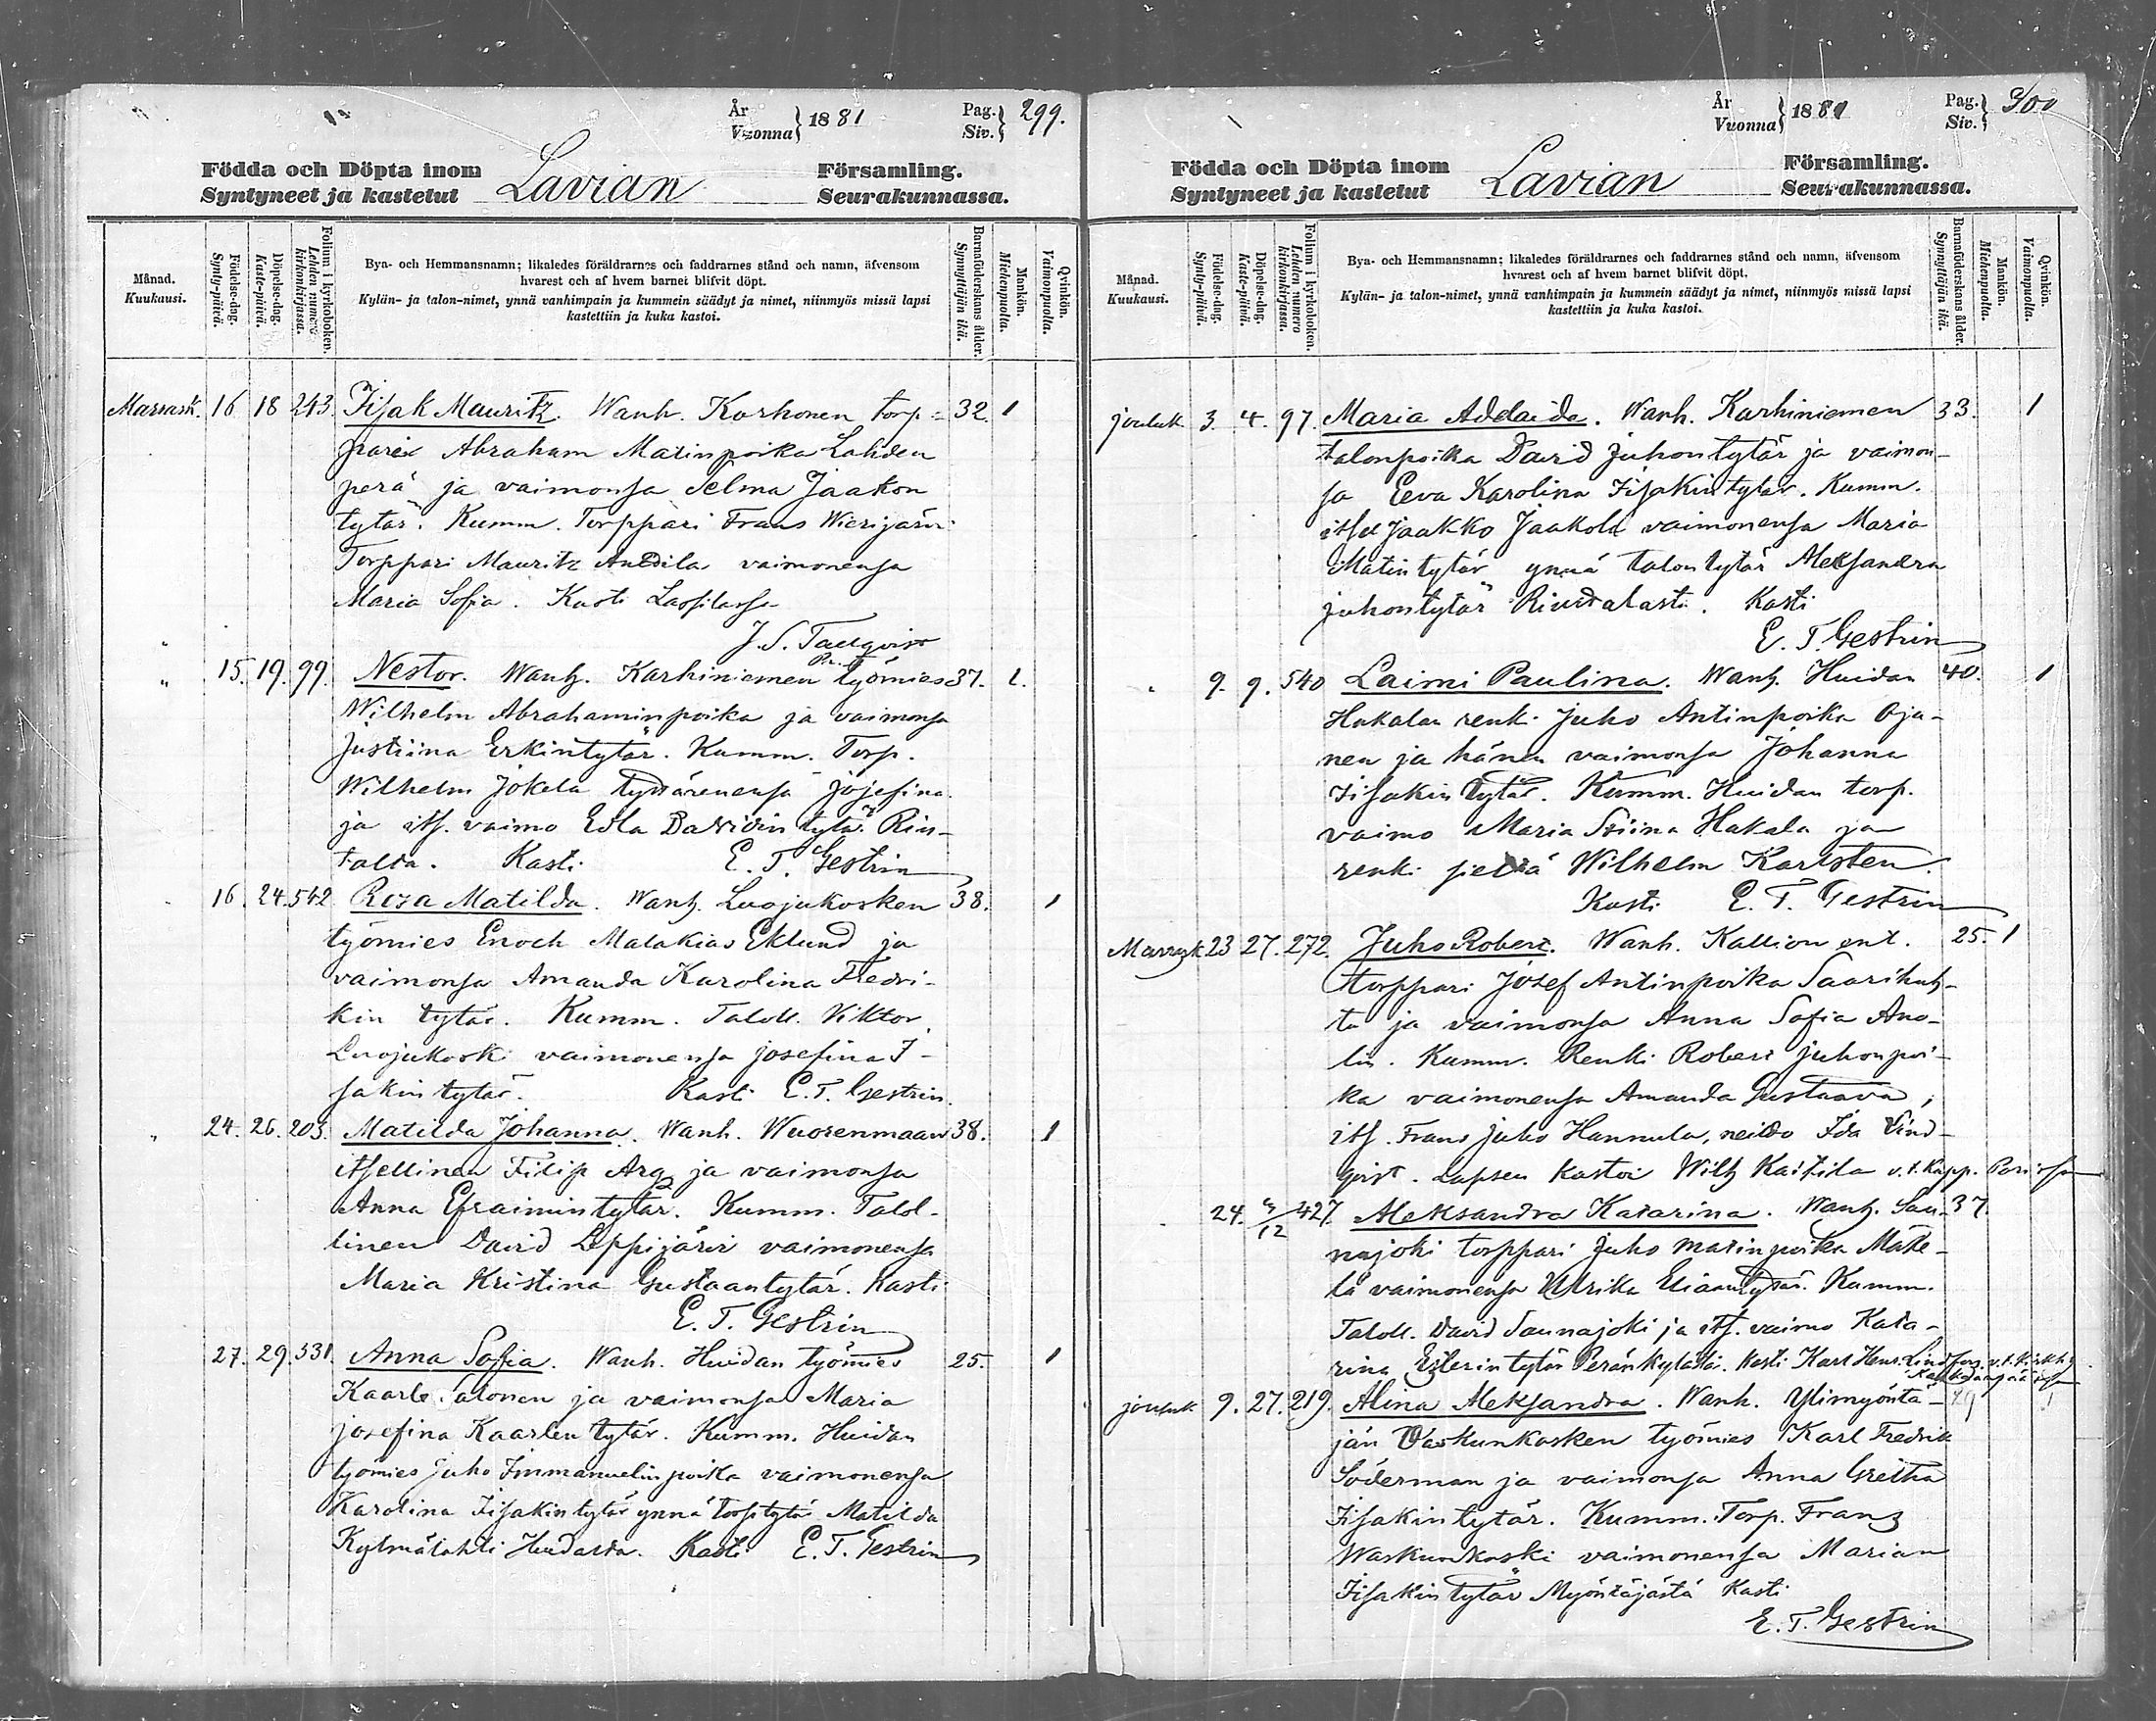 År
Vuonna } 1881
Pag.
Siv. } 299.
Födda och Döpta inom
Syntyneet ja kastetut
Lavian
Församling.
Seurakunnassa.
Månad.
Kuukausi.
Födelse-dag.
Synty-päivä.
Döpelse-dag.
Kaste-päivä.
Folium i kyrkoboken.
Lehden numero kirkonkirjassa.
Bya- och Hemmansnamn; likaledes föräldrarnes och faddrarnes stånd och namn, äfvensom
hvarest och af hvem barnet blifvit döpt.
Kylän- ja talon-nimet, ynnä vanhimpain ja kummein säädyt ja nimet, niinmyös missä lapsi
kastettiin ja kuka kastoi.
Barnaföderskans ålder.
Synnyttäjän ikä.
Mankön.
Miehenpuolia.
Qvinkön.
Vaimonpuolia.
Marrask. 16 18 243. Iisak Mauritz. Wanh. Korhonen torp= 32. 1
pari Abraham Matinpoika Lahden
perä ja vaimonsa Selma Jaakon
tytär. Kumm. Torppari Frans Wierijärvi
Torppari Mauritz Anttila vaimonensa
Maria Sofia. Kasti Lassilassa
J. S. Tallqvist
" 15. 19. 99. Nestor. Wanh. Karhiniemen työmies 37. 1.
Wilhelm Abrahaminpoika ja vaimonsa
Justiina Erkintytär. Kumm. Torp.
Wilhelm Jokela tyttärenensä Josefina
ja its. vaimo Edla Davidin tytär Rin-
talta. Kasti E. T. Gestrin
16. 24. 542 Roza Matilda. Wanh. Luojukosken 38. 1
työmies Enoch Malakias Eklund ja
vaimonsa Amanda Karolina Fredri-
kin tytär. Kumm. Taloll. Viktor
Luojukoski vaimonensa Josefina I-
sakin tytär. Kasti E. T. Gestrin.
" 24. 26. 203. Matilda Johanna. Wanh. Wuorenmaan 38. 1
itsellinen Filip Arg ja vaimonsa
Anna Efraimintytär. Kumm. Talol-
linen David Leppijärvi vaimonensa
Maria Kristina Gustaantytär. Kasti
E. T. Gestrin
27. 29. 531. Anna Sofia. Wanh. Huidan työmies 25. 1
Kaarle Salonen ja vaimonsa Maria
Josefina Kaarlen tytär. Kumm. Huidan
työmies Juho Immanuelin poika vaimonensa
Karolina Iisakintytär ynnä torp.tytär Matilda
Kylmälahti Huidasta. Kasti E. T. Gestrin
År
Vuonna } 1881
Pag.
Siv. } 300
Födda och Döpta inom
Syntyneet ja kastetut
Lavian
Församling.
Seurakunnassa.
Månad.
Kuukausi.
Födelse-dag.
Synty-päivä.
Döpelse-dag.
Kaste-päivä.
Folium i kyrkoboken.
Lehden numero kirkonkirjassa.
Bya- och Hemmansnamn; likaledes föräldrarnes och faddrarnes stånd och namn, äfvensom
hvarest och af hvem barnet blifvit döpt.
Kylän- ja talon-nimet, ynnä vanhimpain ja kummein säädyt ja nimet, niinmyös missä lapsi
kastettiin ja kuka kastoi.
Barnaföderskans ålder.
Synnyttäjän ikä.
Mankön.
Miehenpuolia.
Qvinkön.
Vaimonpuolia.
jouluk 3. 4. 97. Maria Adelaida. Wanh. Karhiniemen 33. 1
talonpoika David Juhontytär ja vaimon-
sa Eeva Karolina Iisakin tytär. Kumm.
itsel Jaakko Jaakola vaimonensa Maria
Matintytär ynnä talon tytär Aleksandra
Juhontytär Rindalasti. Kasti
E. T. Gestrin
" 9. 9. 540 Laimi Paulina. Wanh. Huidan 40. 1
Hakalan renki Juho Antinpoika Oja-
nen ja hänen vaimonsa Johanna
Iisakin tytär. Kumm. Huidan torp.
vaimo Maria Stiina Hakala ja
renki sieltä Wilhelm Karlsten.
Kasti E. T. Gestrin
Marrask 23 27. 272. Juho Robert. Wanh. Kallion ent. 25. 1
torppari Josef Antinpoika Saarihuh-
ta ja vaimonsa Anna Sofia Ano-
lin. Kumm. Renki Robert Juhonpoi-
ka vaimonensa Amanda Gustaava,
its. Frans Juho Hannula, neito Ida Lind-
qvist. Lapsen kastoi Wilh Kaitila v.t. Kapp.
24. 4/12 427. Aleksandra Katarina. Wanh. Sau- 37
najoki torppari Juho Matinpoika Mäke-
lä vaimonensa Ulrika Eliaantytär. Kumm.
Taloll. David Saunajoki ja its. vaimo Kata-
rina Esterin tytär Peränkylästä. Kasti Karl Henr. Lindfors. v.t. Kirkkh
Kankaanpäässä
jouluk 9. 27. 219. Alina Aleksandra. Wanh. Ylimyöntä- 29 1
jän Waskunkosken työmies Karl Fredrik
Söderman ja vaimonsa Anna Gretha
Iisakintytär. Kumm. Torp. Franz
Waskunkoski vaimonensa Marian
Iisakin tytär Myöntäjästä Kasti
E. T. Gestrin